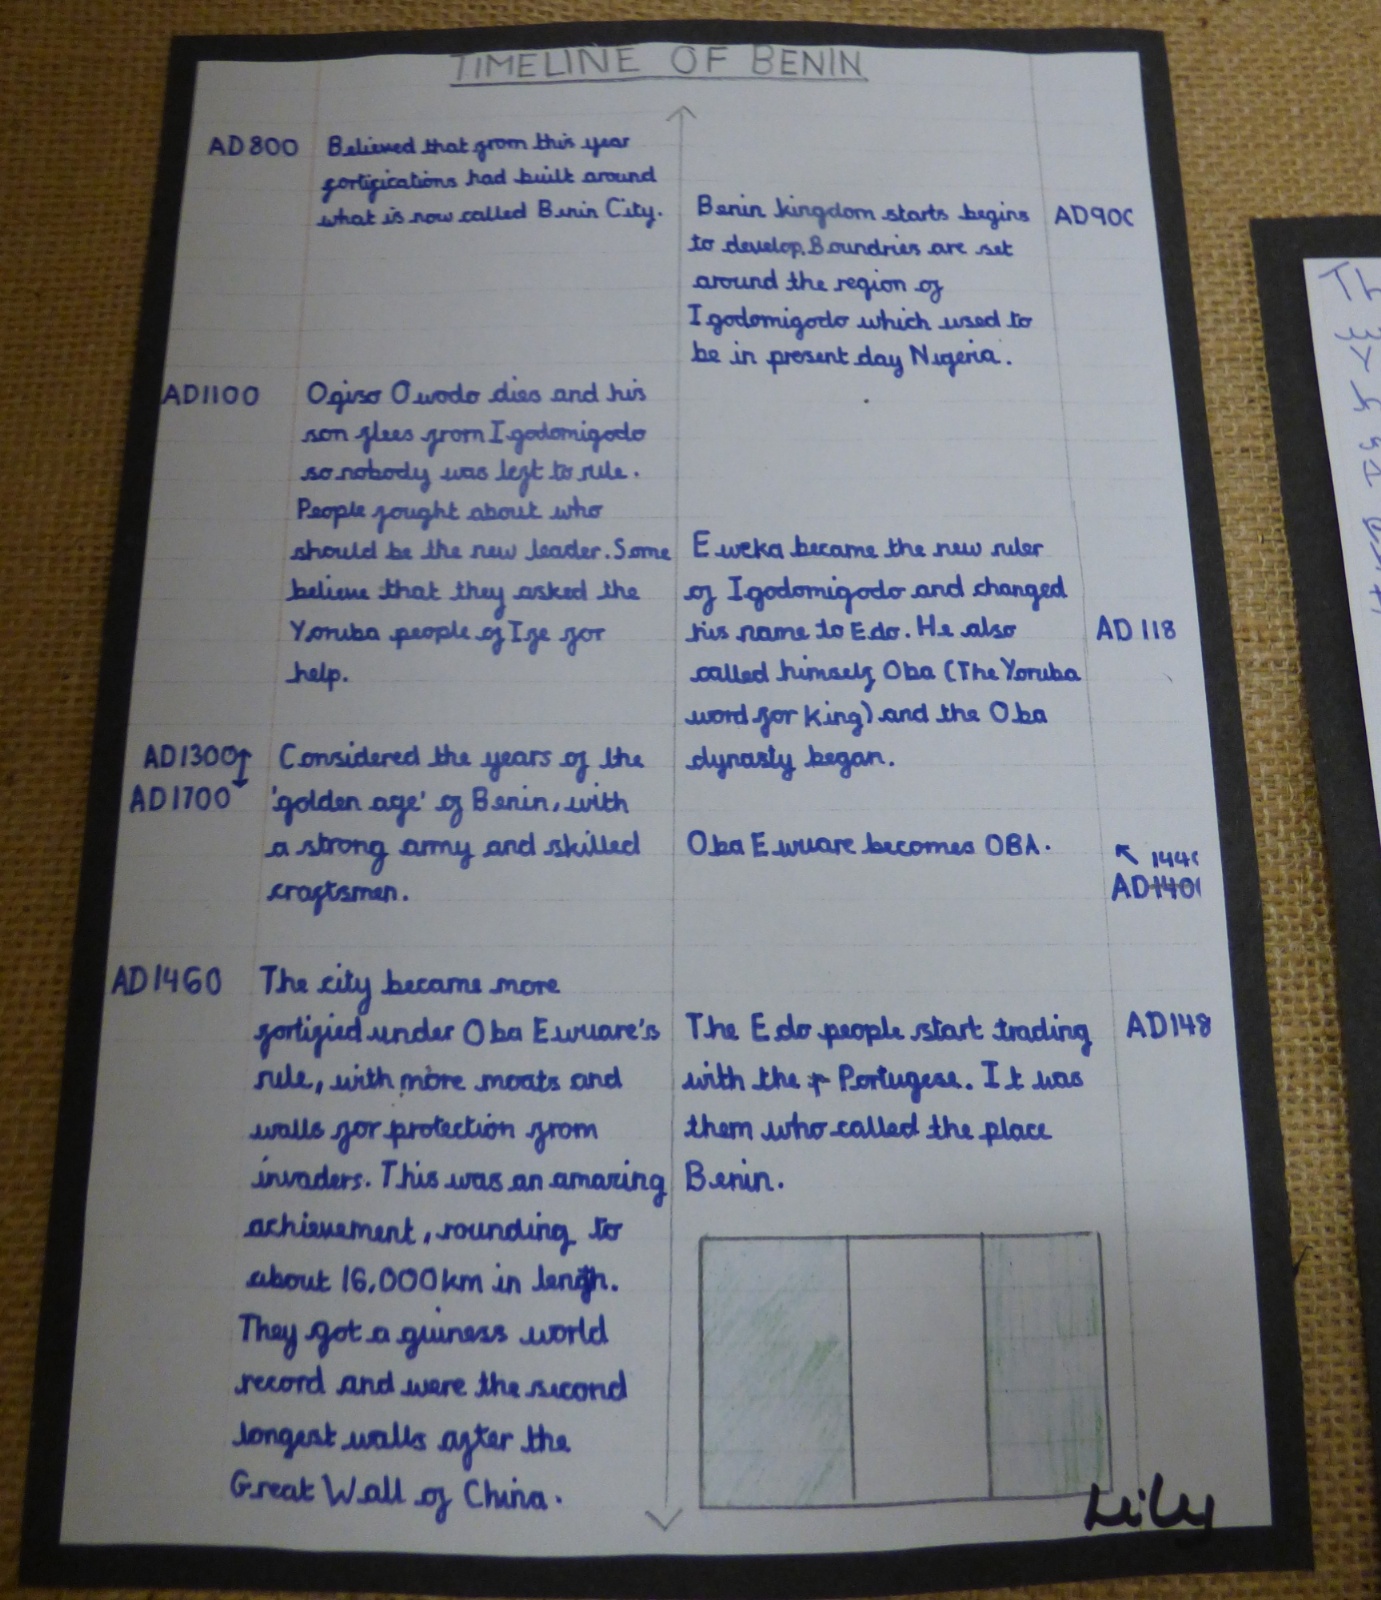 TIMELINE OF BENIN
AD800
Believed that from this year
fortifications had built around
what is now called Benin City.
Benin kingdom starts begins
to develop. Boundries are set
around the region of
Igodomigodo which used to
be in present day Nigeria.
AD900
AD1100
Ogiso Owodo dies and his
son flees from Igodomigodo
so nobody was left to rule.
People fought about who
should be the new leader. Some
believe that they asked the
Yoruba people of Ife for
help.
Eweka became the new ruler
of Igodomigodo and changed
his name to Edo. He also
called himself Oba (The Yoruba
word for king) and the Oba
dynasty began.
AD 118
AD1300
AD1700
Considered the years of the
'golden age' of Benin, with
a strong army and skilled
craftsmen.
Oba Ewuare becomes OBA.
144
AD140
AD1460
The city became more
fortified under Oba Ewuare's
rule, with more moats and
walls for protection from
invaders. This was an amazing
achievement, rounding to
about 16,000km in length.
They got a guiness world
record and were the second
longest walls after the
Great Wall of China.
The Edo people start trading
with the Portugese. It was
them who called the place
Benin.
AD148
Lily